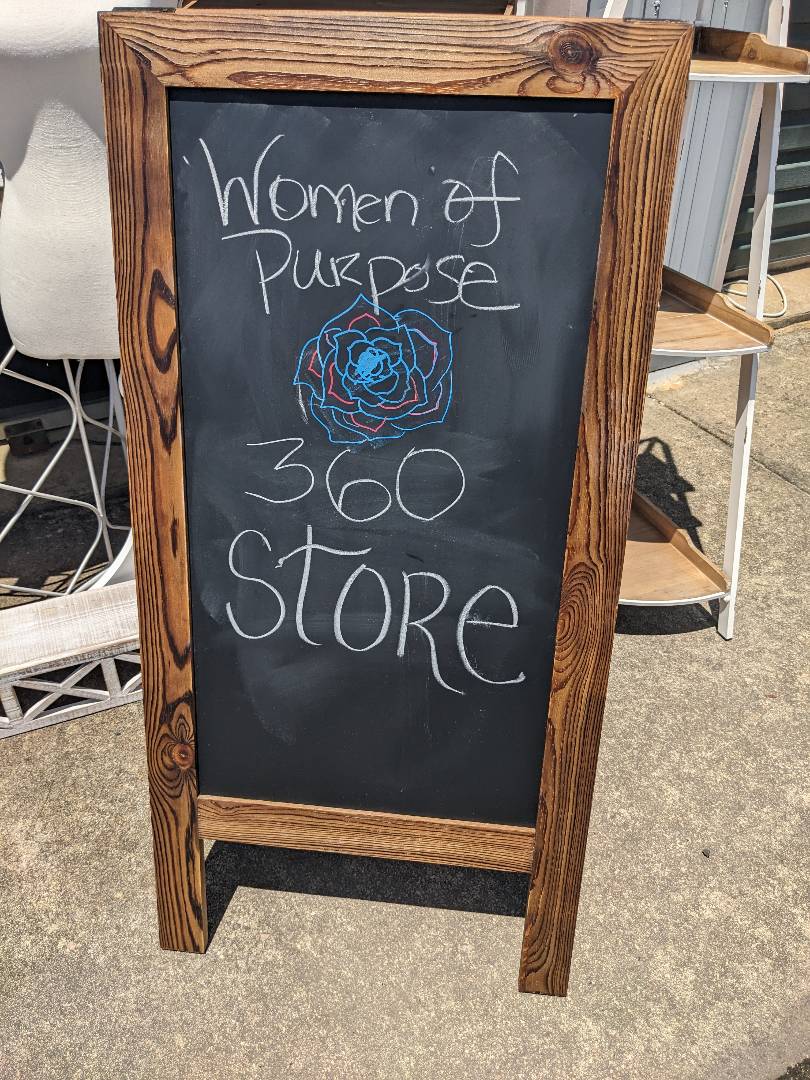 Women of
Purpose
360
Store